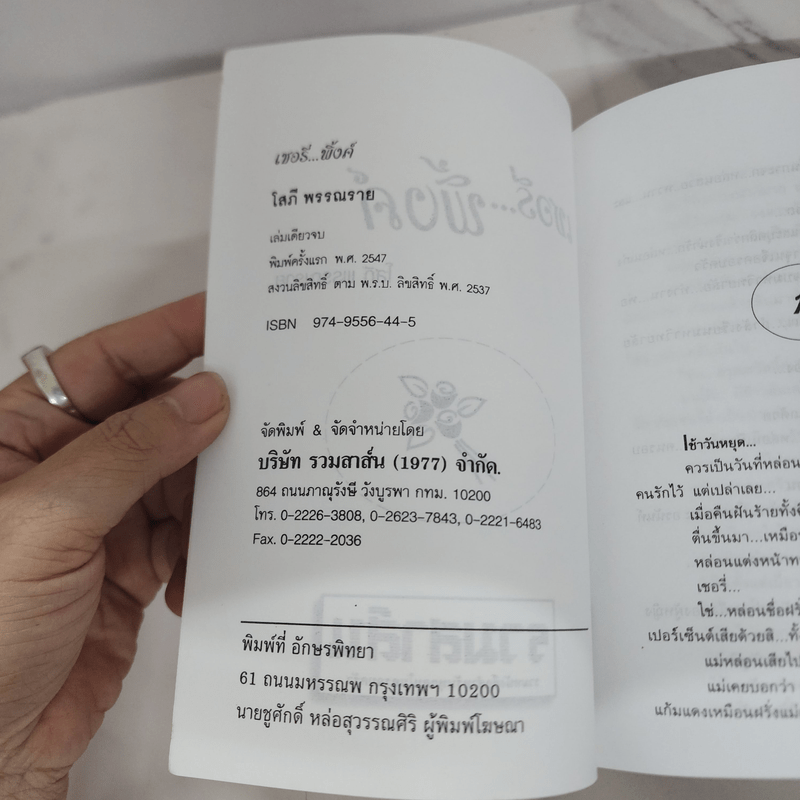 เชอรี่...พิ้งค์
โสภี พรรณราย
เล่มเดียวจบ
พิมพ์ครั้งแรก พ.ศ. 2547
สงวนลิขสิทธิ์ ตาม พ.ร.บ. ลิขสิทธิ์ พ.ศ. 2537
ISBN 974-9556-44-5
จัดพิมพ์ & จัดจำหน่ายโดย
บริษัท รวมสาส์น (1977) จำกัด.
864 ถนนภาณุรังษี วังบูรพา กทม. 10200
โทร. 0-2226-3808, 0-2623-7843, 0-2221-6483
Fax. 0-2222-2036
พิมพ์ที่ อักษรพิทยา
61 ถนนมหรรณพ กรุงเทพฯ 10200
นายชูศักดิ์ หล่อสุวรรณศิริ ผู้พิมพ์โฆษณา
เช้าวันหยุด...
ควรเป็นวันที่หล่อน
คนรักไว้ แต่เปล่าเลย...
เมื่อคืนฝันร้ายทั้ง
ตื่นขึ้นมา...เหมือน
หล่อนแต่งหน้าทา
เชอรี่...
ใช่...หล่อนชื่อฝรั่ง
เปอร์เซ็นต์เสียด้วยสิ...ทั้ง
แม่หล่อนเสียไป
แม่เคยบอกว่า
แก้มแดงเหมือนฝรั่งแม่